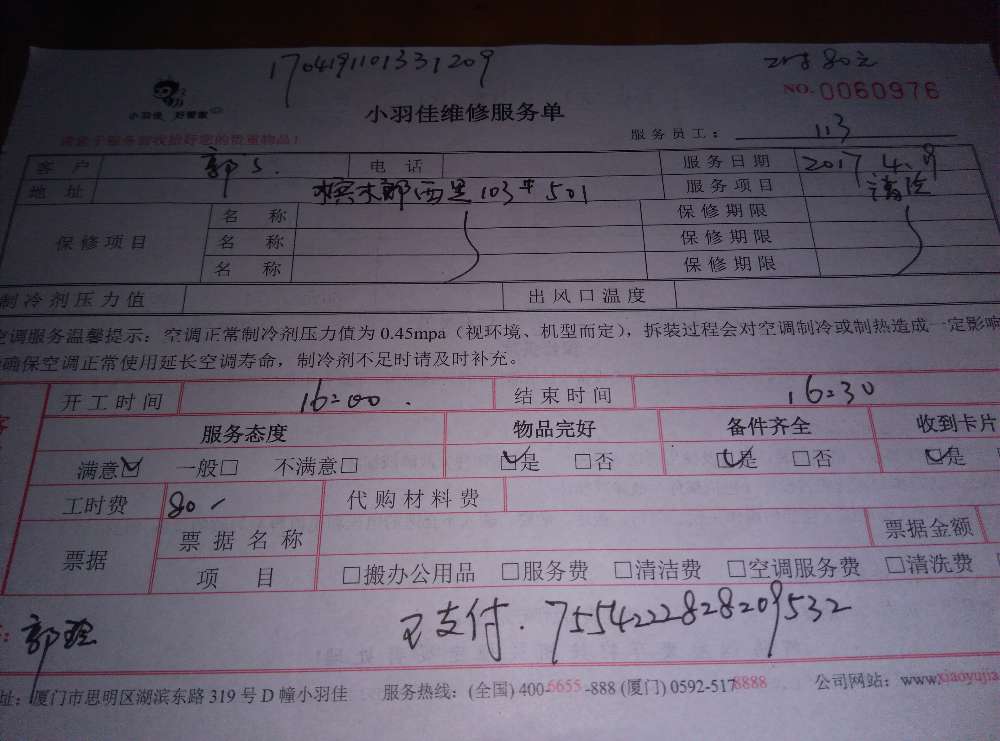 1704191101331209
80元
小羽佳 好管家
NO.0060976
小羽佳维修服务单
请您于服务前收拾好您的贵重物品!
服务员工: 113
客户 郭S. 电话 服务日期 2017 4.19
地址 槟榔西里103# 501 服务项目 清洗
保修项目 名称 保修期限
名称 保修期限
名称 保修期限
制冷剂压力值 出风口温度
空调服务温馨提示:空调正常制冷剂压力值为0.45mpa(视环境、机型而定),拆装过程会对空调制冷或制热造成一定影响
确保空调正常使用延长空调寿命,制冷剂不足时请及时补充。
开工时间 16:00. 结束时间 16:30
服务态度 物品完好 备件齐全 收到卡片
满意☑ 一般□ 不满意□ ☑是 □否 ☑是 □否 ☑是
工时费 80 代购材料费
票据 票据名称 票据金额
项目 □搬办公用品 □服务费 □清洁费 □空调服务费 □清洗费
已支付. 7554222828209532
址:厦门市思明区湖滨东路319号D幢小羽佳 服务热线:(全国)400-6655-888(厦门)0592-5178888 公司网站:www.xiaoyujia